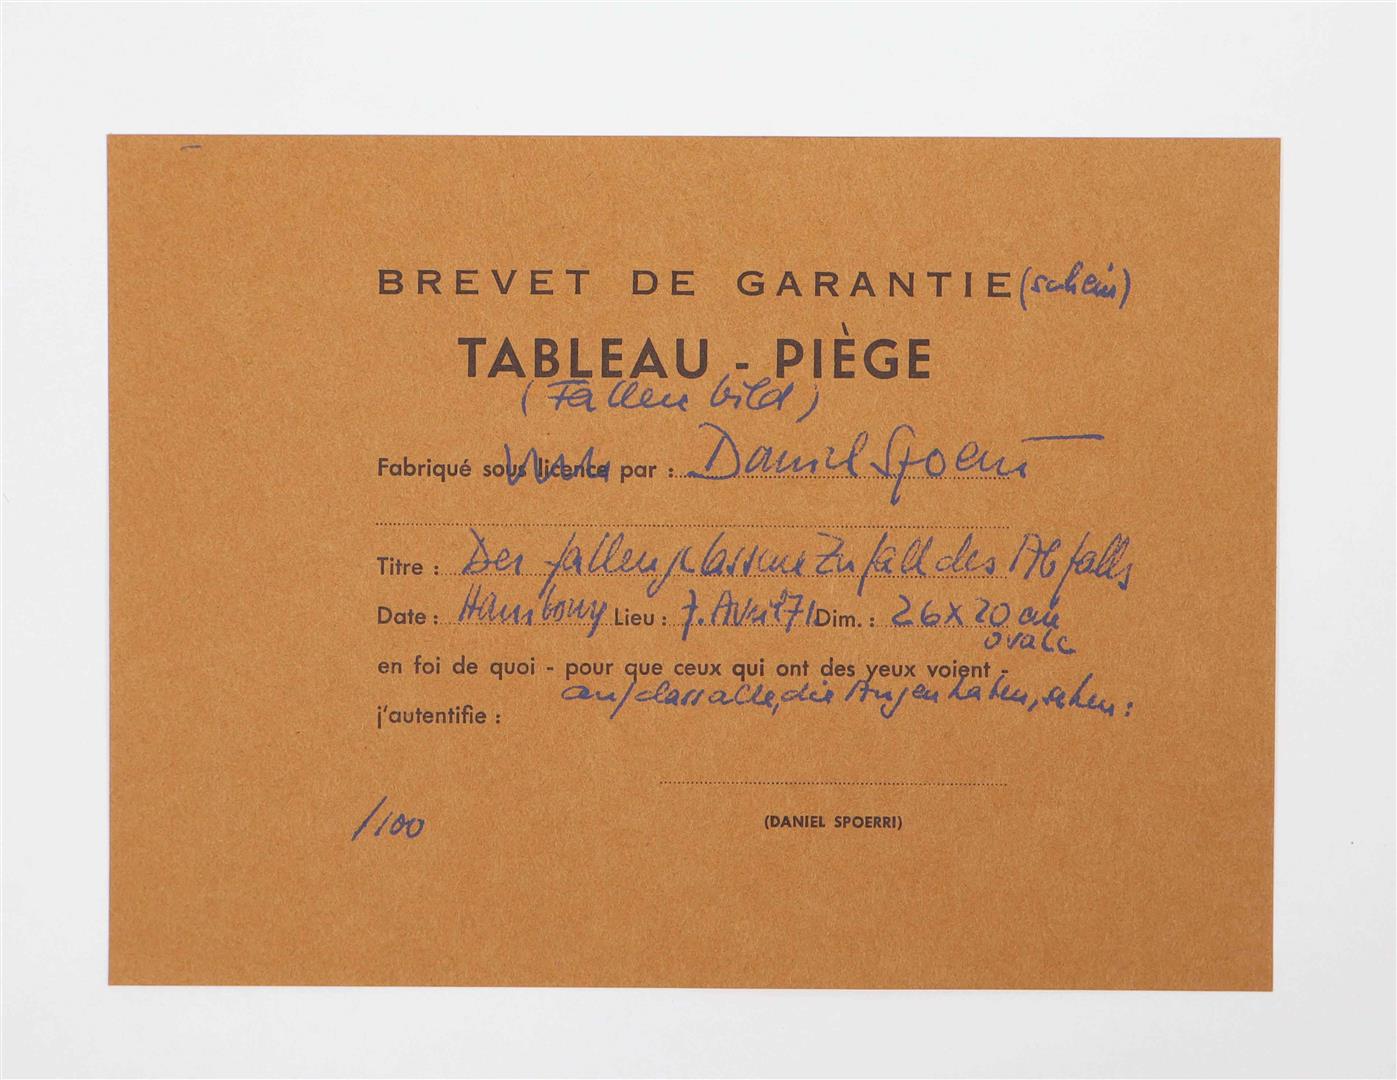 BREVET DE GARANTIE (schein)
TABLEAU - PIÈGE
(Fallenbild)
Fabriqué sous licence par : Daniel Spoerri
Titre : Der fallengelassene Zufall des Abfalls
Date : Hambourg Lieu : 7. Avril 71 Dim. : 26 x 20 cm
ovale
en foi de quoi - pour que ceux qui ont des yeux voient -
auf dass alle, die Augen haben, sehen :
j'autentifie :
/100
(DANIEL SPOERRI)